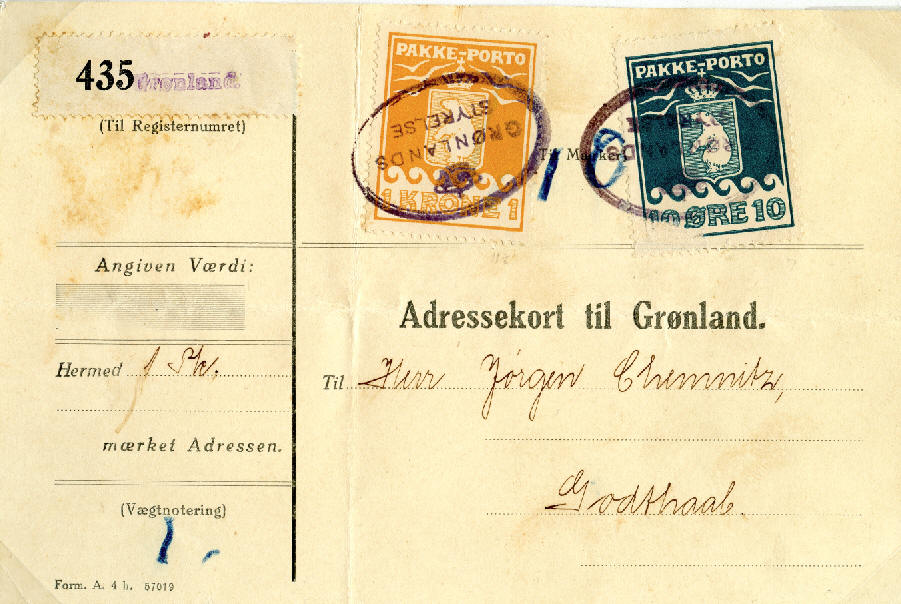 435 Grønland.
(Til Registernumret)
PAKKE-PORTO
1 KRONE 1
GRØNLANDS
STYRELSE
PAKKE-PORTO
10 ØRE 10
GRØNLANDS
STYRELSE
(Til Mærker)
10
Angiven Værdi:
Hermed 1 Pk.
mærket Adressen.
(Vægtnotering)
1.
Form. A. 4 b. 57019
Adressekort til Grønland.
Til Herr Jörgen Chemnitz,
Godthaab.